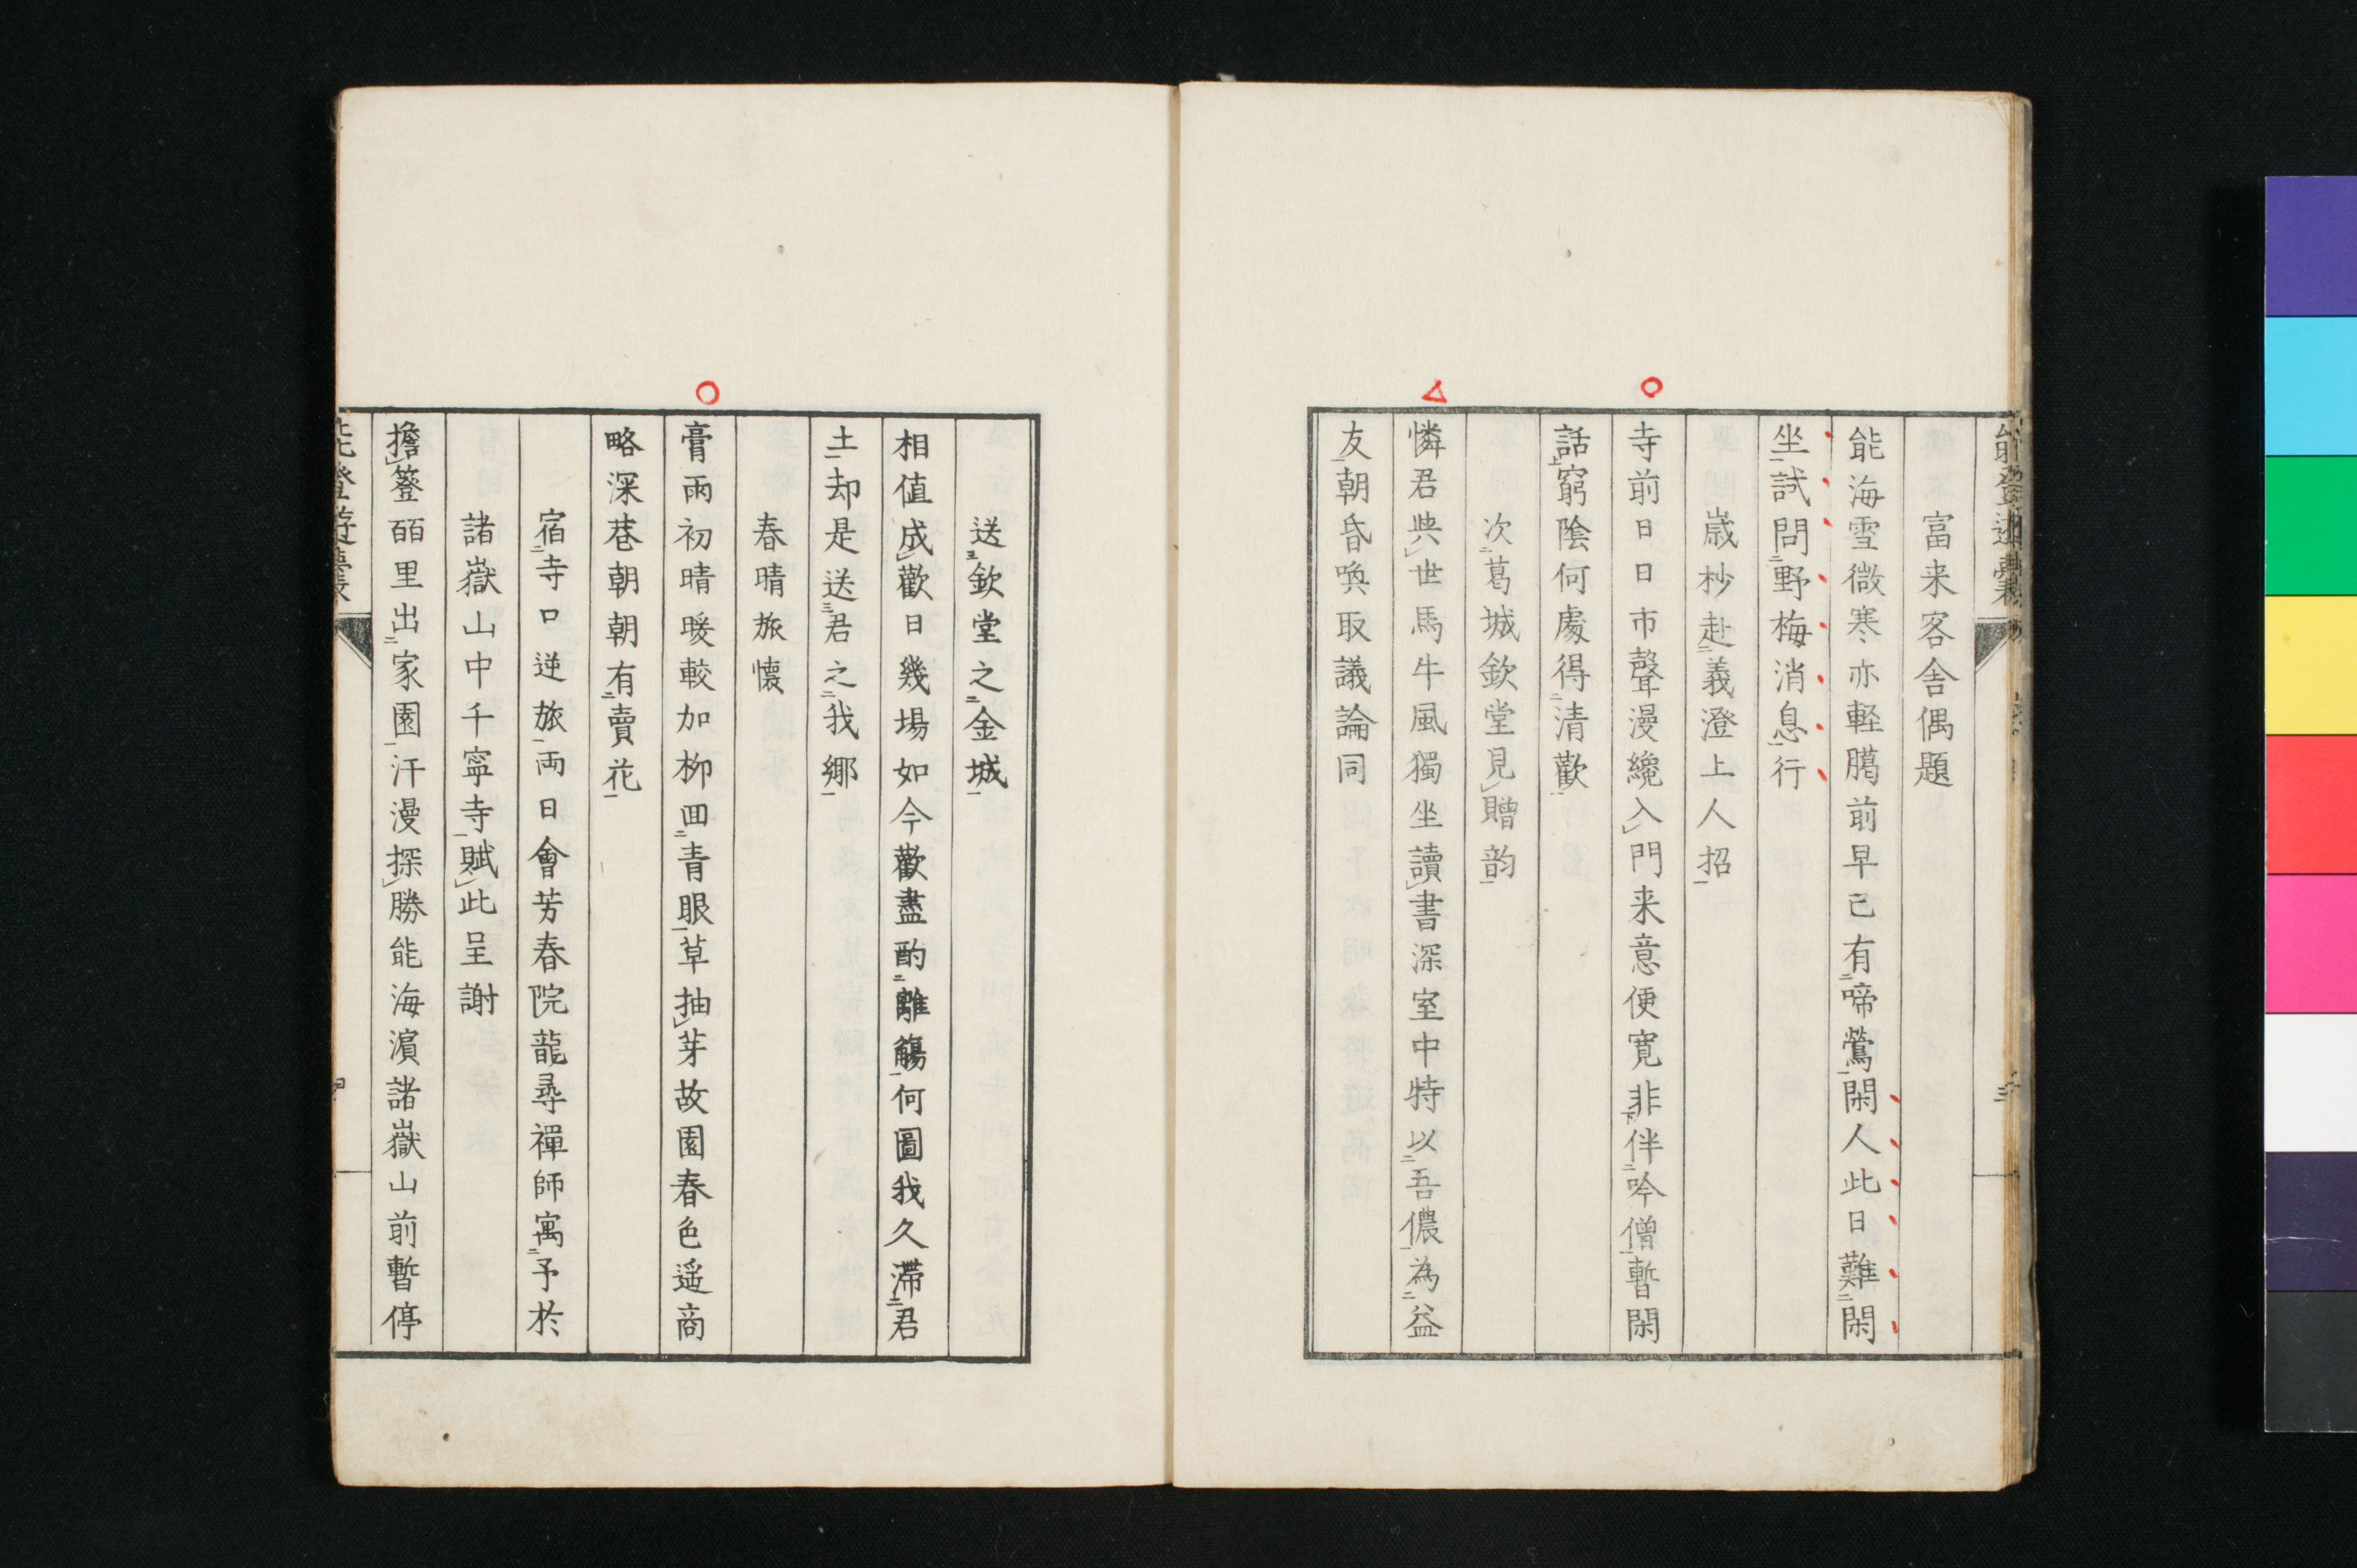 富来客舎偶題
能海雪微寒亦軽臈前早已有啼鶯閑人此日難閑
坐試問野梅消息行
歳杪赴義澄上人招
寺前日日市聲漫纔入門来意便寛非伴吟僧暫閑
話窮陰何處得清歡
次葛城欽堂見贈韵
憐君與世馬牛風獨坐讀書深室中特以吾儂為益
友朝昏喚取議論同
送欽堂之金城
相值成歡日幾場如今歡盡酌離觴何圖我久滞君
土却是送君之我鄉
春晴旅懐
膏雨初晴暖較加柳回青眼草抽芽故園春色遥商
略深巷朝朝有賣花
宿寺口逆旅両日會芳春院龍尋禪師寓予於
諸嶽山中千寧寺賦此呈謝
擔簦百里出家園汗漫探勝能海濵諸嶽山前暫停
能登遊囊